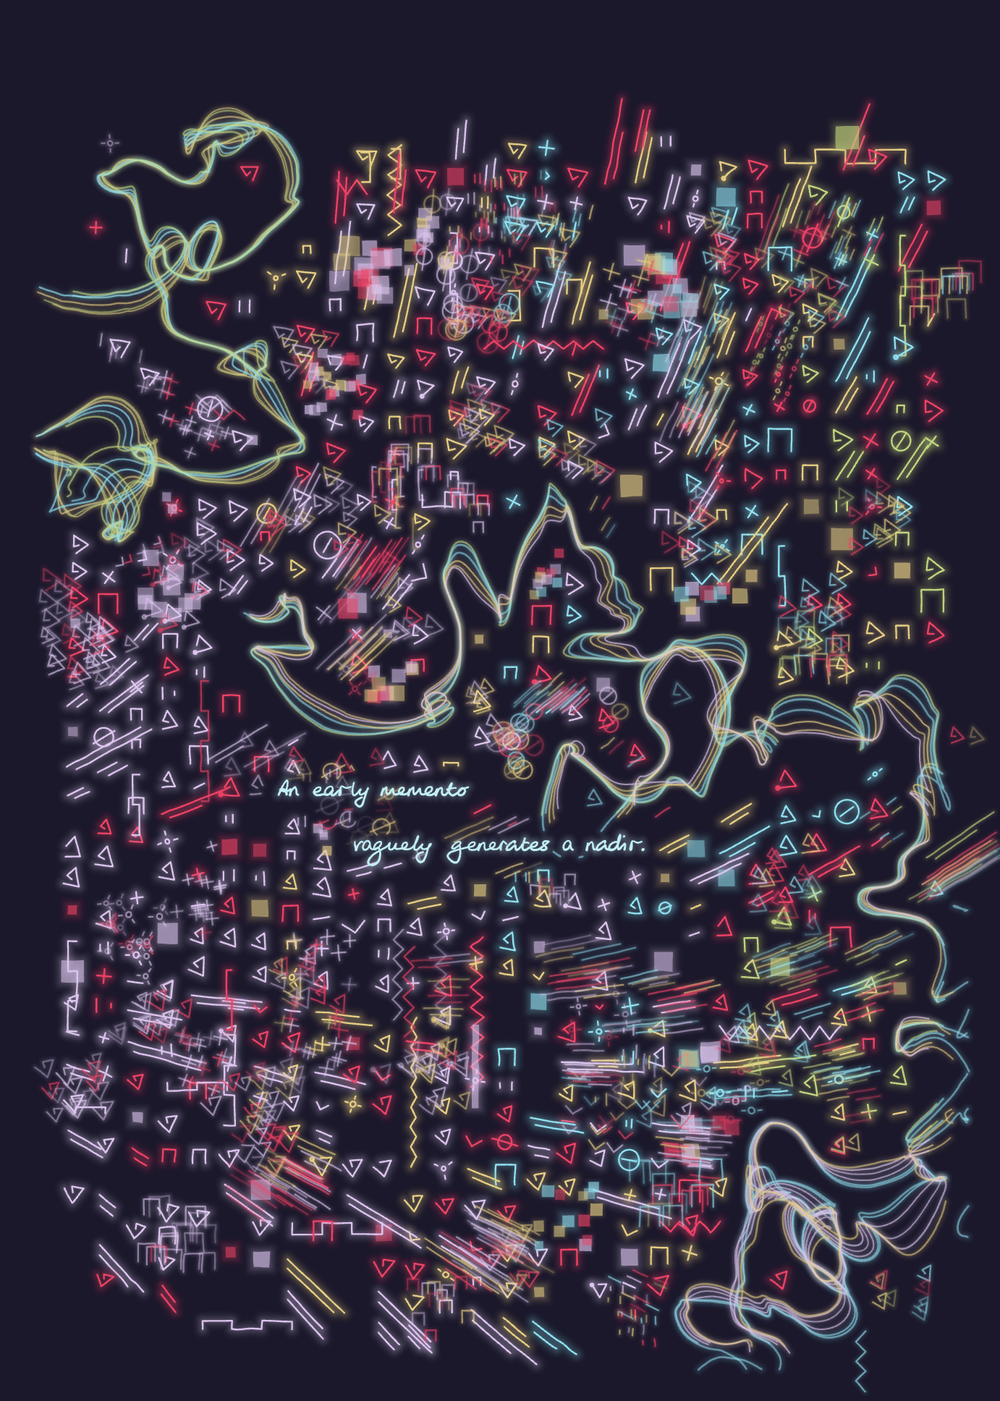 An early memento
vaguely generates a nadir.